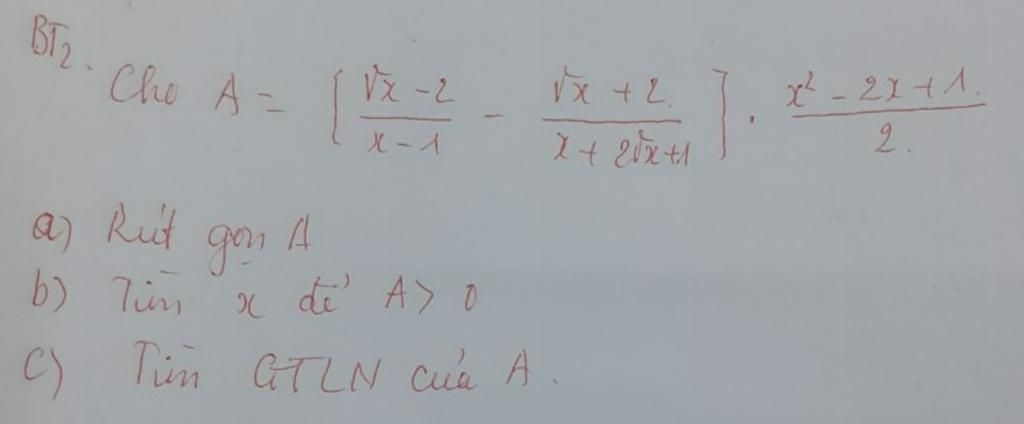 BT2.
Cho A = [ (√x - 2)/(x - 1) - (√x + 2)/(x + 2√x + 1) ] . (x² - 2x + 1)/2.
a) Rút gọn A
b) Tìm x để A > 0
c) Tìm GTLN của A.